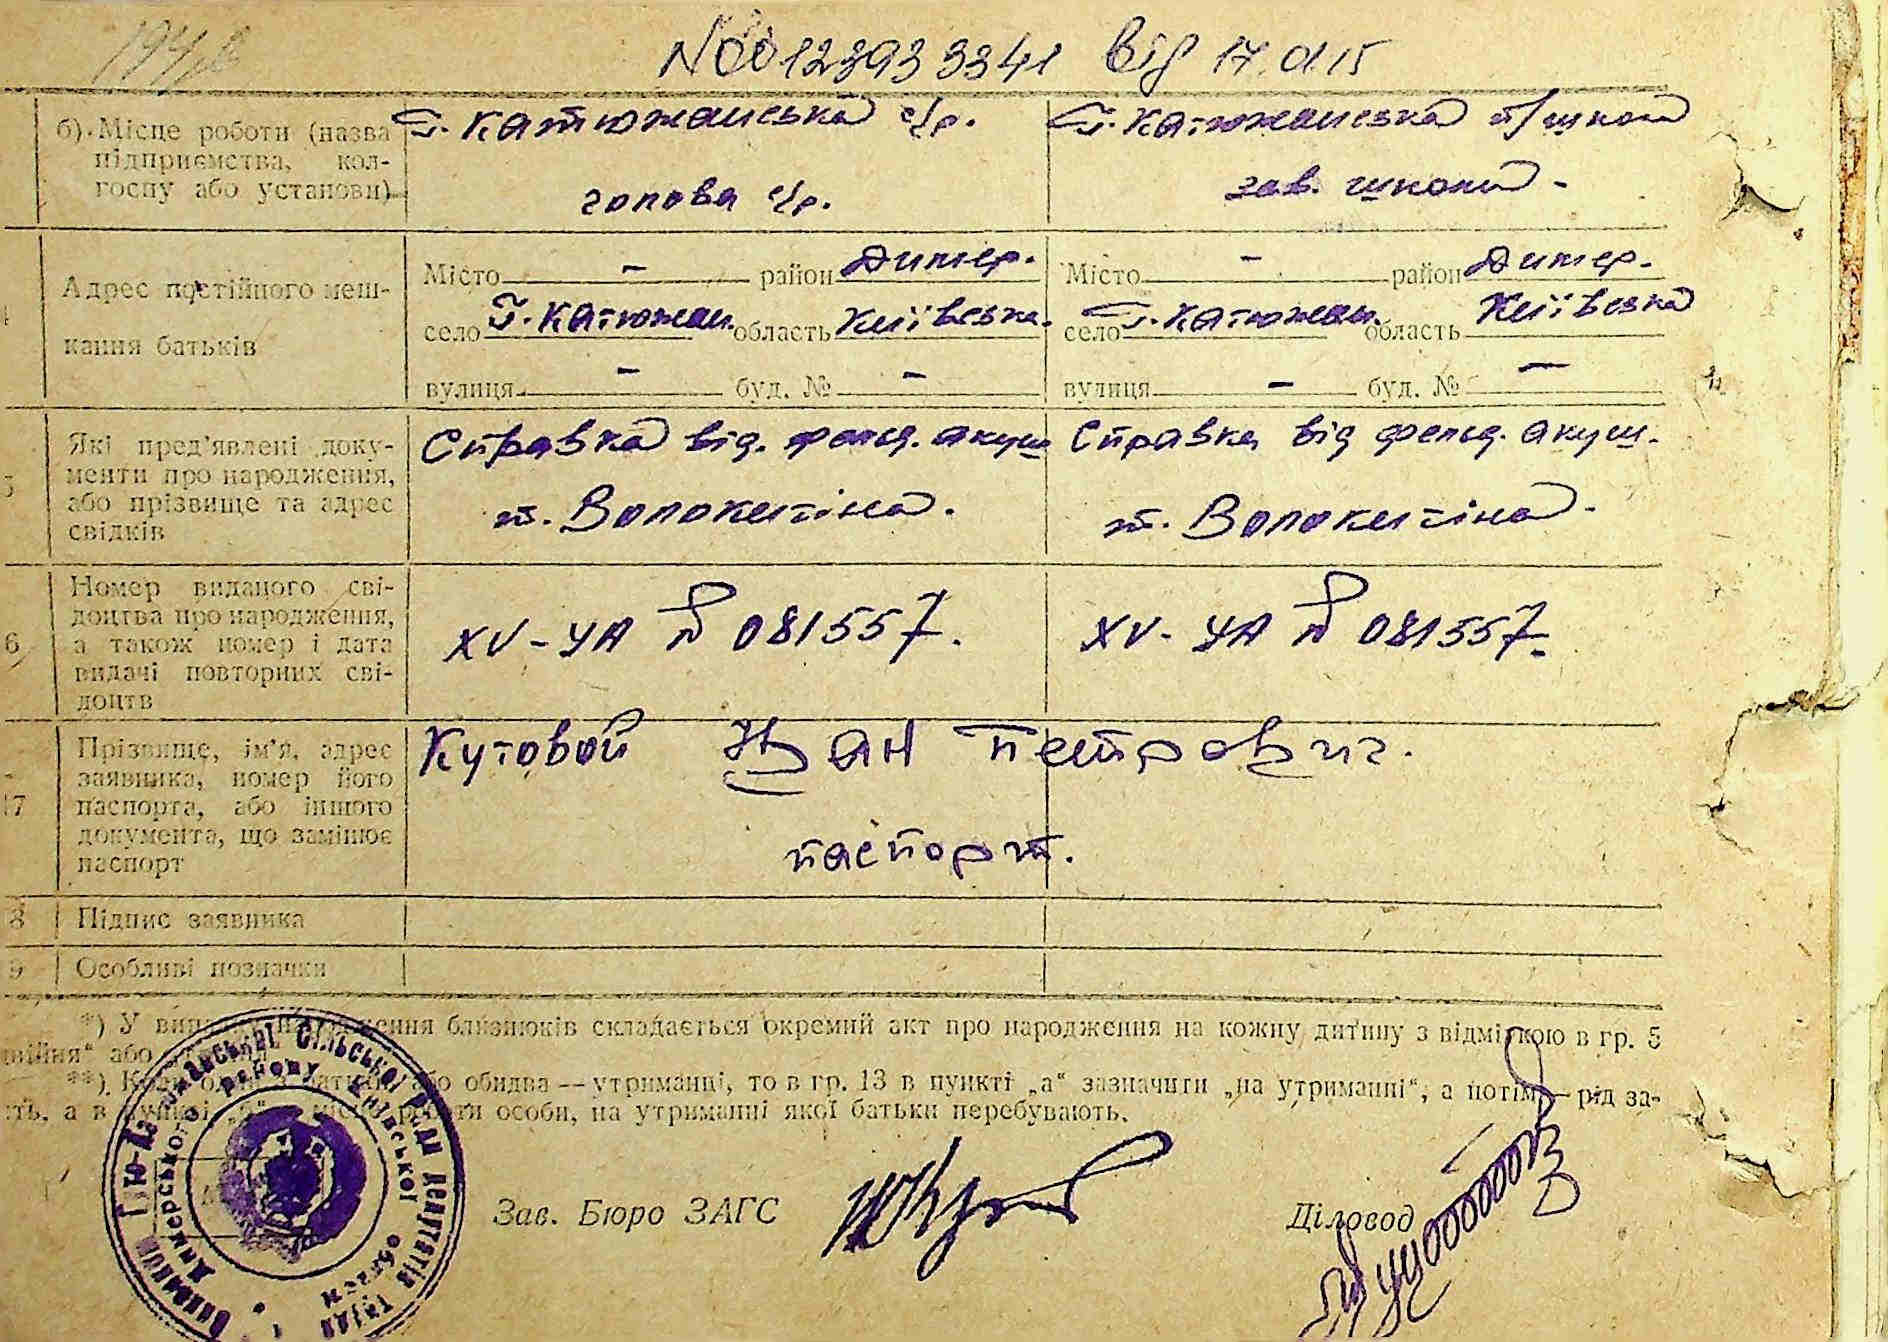 № 00123933341 від 17.01.15
б) Місце роботи (назва
підприємства, кол-
госпу або установи)
Г. Катюжанська с/р.
голова с/р.
Г. Катюжанська п/школа
зав. школи -
Адрес постійного меш-
кання батьків
Місто - район Димер.
село Г. Катюжан. область Київська.
вулиця - буд. № -
Місто - район Димер.
село Г. Катюжан. область Київська
вулиця - буд. № -
5
Які пред'явлені доку-
менти про народження,
або прізвище та адрес
свідків
Справка від. фельд. акуш
т. Волокитіна.
Справка від фельд. акуш.
т. Волокитіна.
6
Номер виданого сві-
доцтва про народження,
а також номер і дата
видачі повторних сві-
доцтв
XV-УА № 081557.
XV-УА № 081557-
17
Прізвище, ім'я, адрес
заявника, номер його
паспорта, або іншого
документа, що замінює
паспорт
Кутовой Іван Петрович.
паспорт.
8 Підпис заявника
9 Особливі позначки
*) У випадку народження близнюків складається окремий акт про народження на кожну дитину з відміткою в гр. 5
„двійня“ або
**) Коли один з батьків або обидва — утриманці, то в гр. 13 в пункті „а“ зазначити „на утриманні“, а потім — рід за-
ть, а в пункті „б“ місце роботи особи, на утриманні якої батьки перебувають.
Катюжанської Сільської Ради депутатів
Димерського району Київської області
Зав. Бюро ЗАГС
Діловод